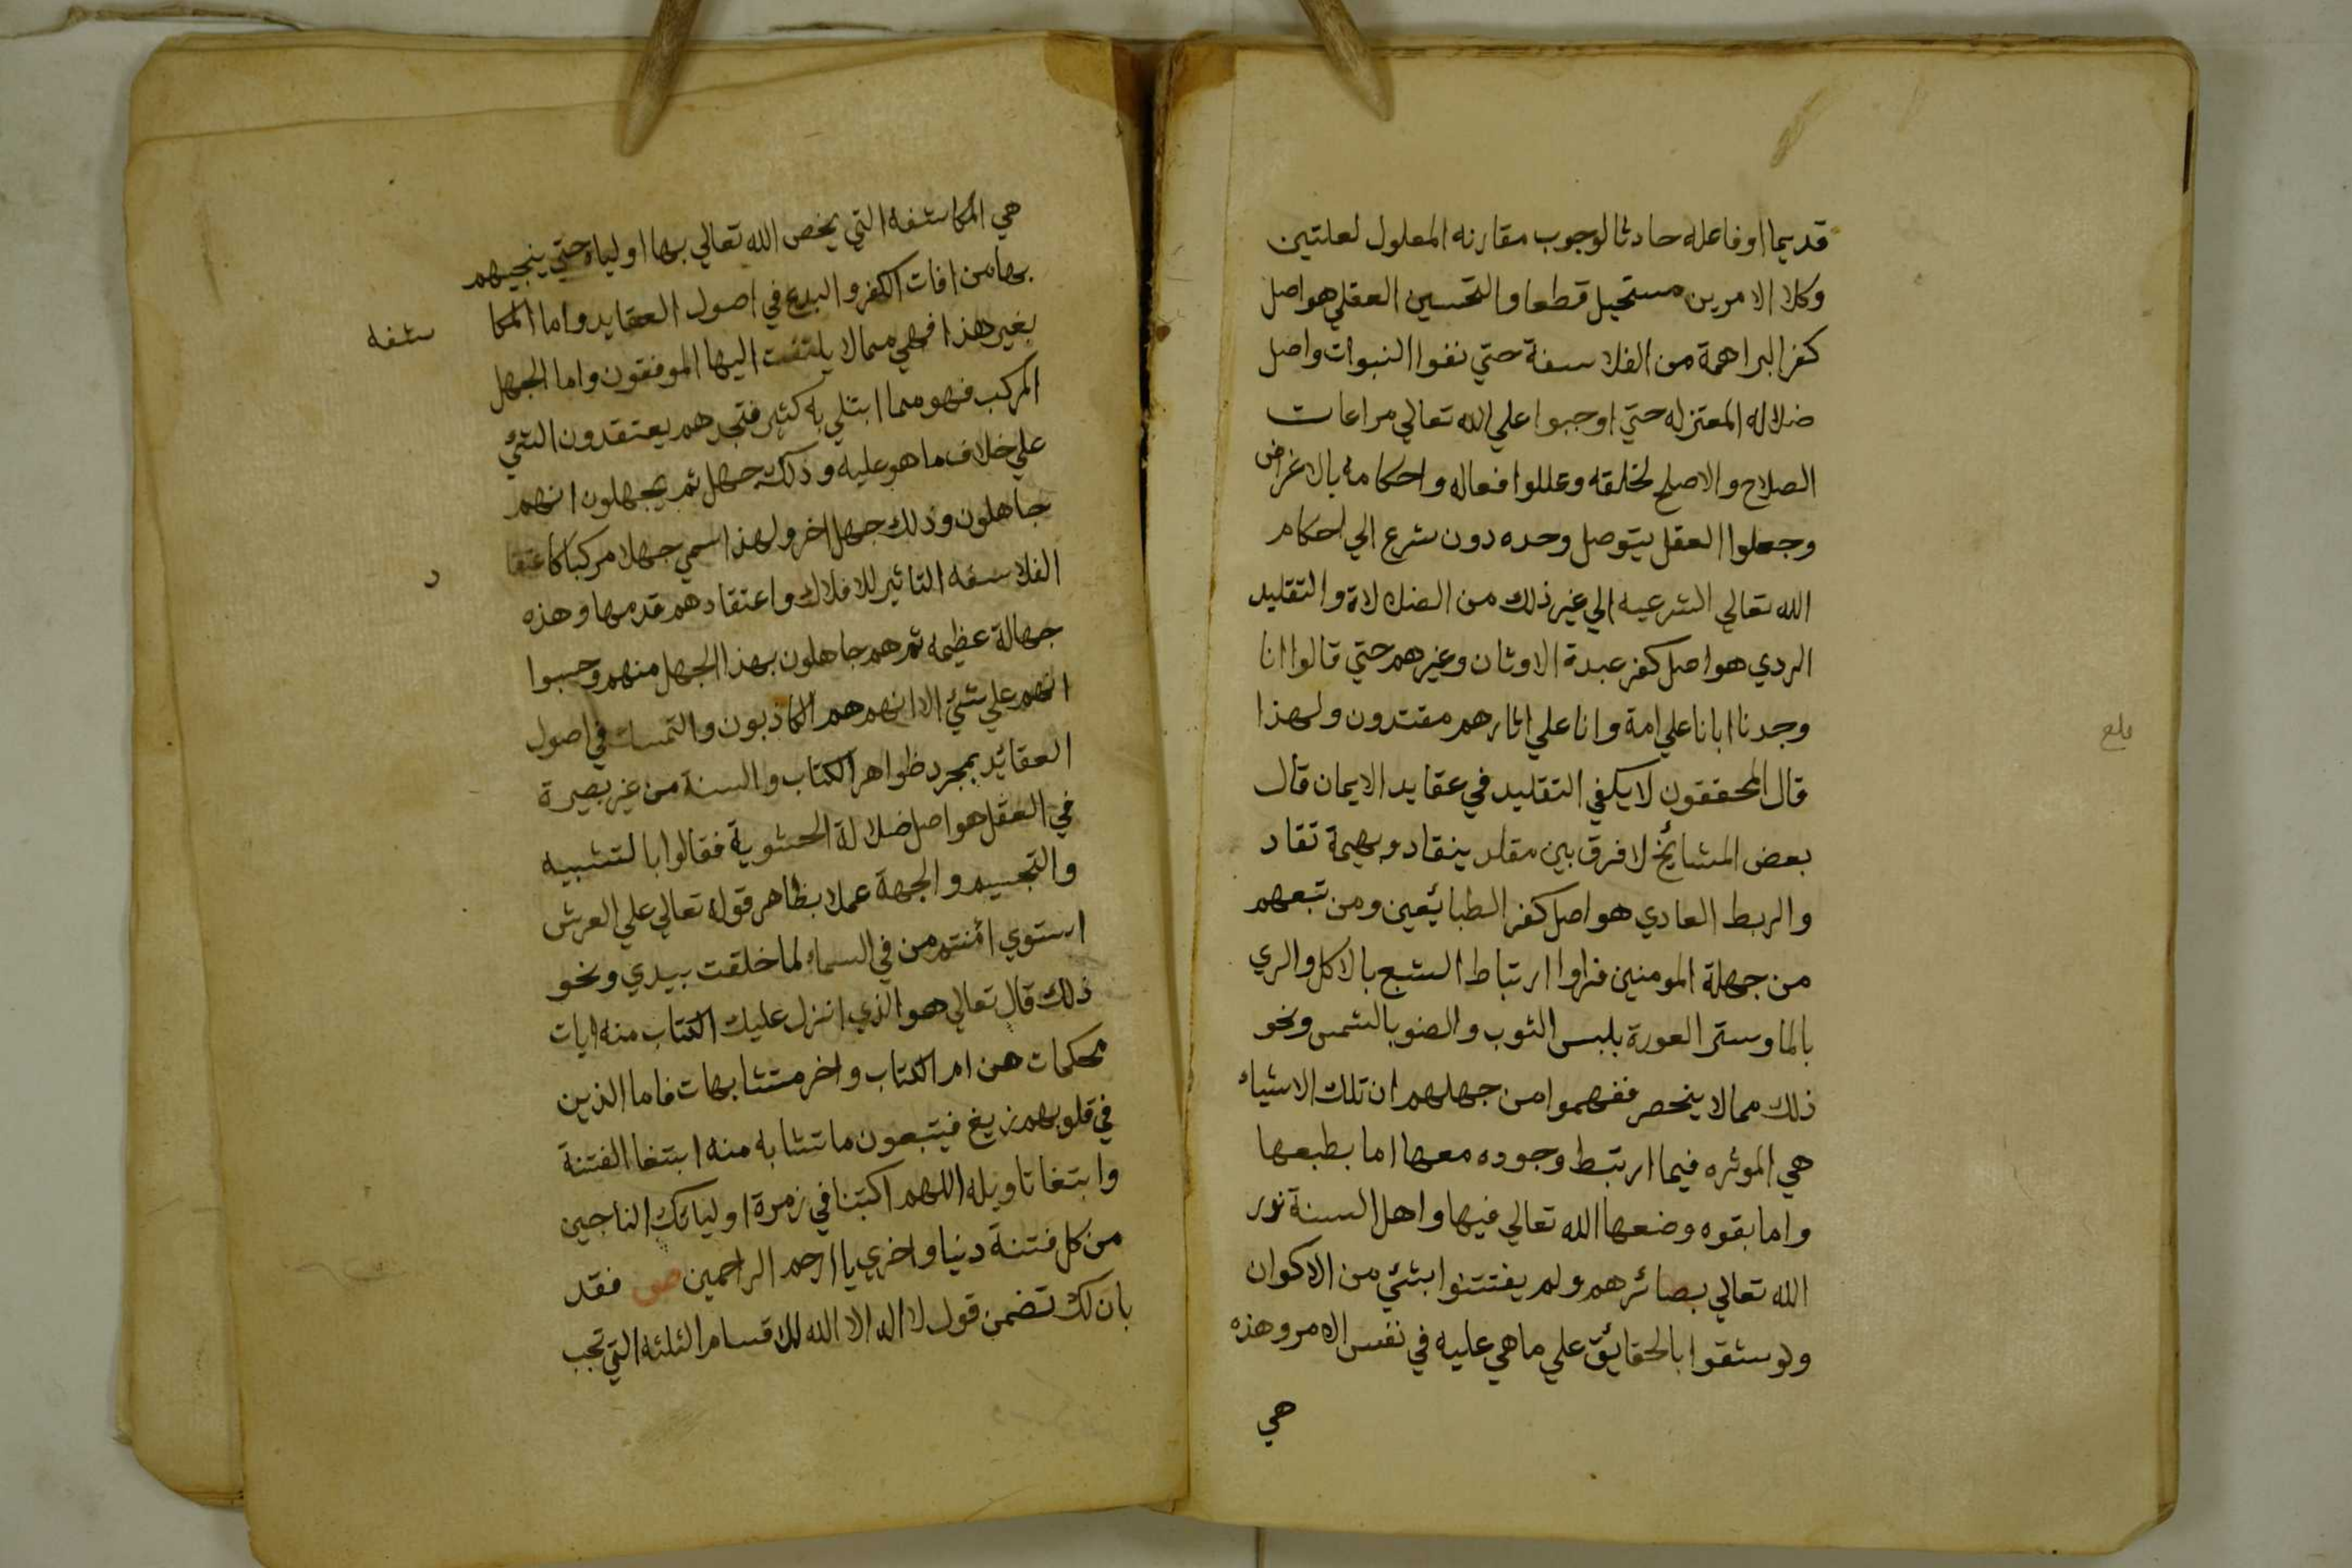 قديما اوفاعله حادثا لوجوب مقارنه المعلول لعلتين
وكلا الامرين مستحيل قطعا والتحسين العقلي هواصل
كفر البراهمة من الفلاسفة حتي نفوا النبوات واصل
ضلاله المعتزله حتي اوجبوا علي الله تعالي مراعات
الصلاح والاصلح لخلقه وعللوا افعاله واحكامه بالاغراض
وجعلوا العقل يتوصل وحده دون شرع الي احكام
الله تعالي الشرعيه الي غير ذلك من الضلالاة والتقليد
الردي هواصل كفر عبدة الاوثان وغيرهم حتي قالوا انا
وجدنا ابانا علي امة وانا علي اثارهم مقتدون ولهذا
قال المحققون لا يكفي التقليد في عقايد الايمان قال
بعض المشائخ لا فرق بين مقلد ينقاد وبهيمة تقاد
والربط العادي هواصل كفر الطبائعين ومن تبعهم
من جهلة المومنين فراوا ارتباط الشبع بالاكل والري
بالما وستر العورة بلبس الثوب والضو بالشمس ونحو
ذلك مما لا ينحصر ففهموا من جهلهم ان تلك الاشياء
هي الموثره فيما ارتبط وجوده معها اما بطبعها
واما بقوه وضعها الله تعالي فيها واهل السنة نور
الله تعالي بصائرهم ولم يفتتنوا بشئ من الاكوان
ولوشقوا بالحقائق علي ماهي عليه في نفس الامر وهذه
هي
بلغ
هي المكاشفه التي يخص الله تعالي بها اولياه حتي ينجيهم
بها من افات الكفر والبدع في اصول العقايد واما المكا شفه
بغير هذا فهي مما لا يلتفت اليها الموفقون واما الجهل
المركب فهو مما ابتلي به كثير فتجدهم يعتقدون الشئ
علي خلاف ما هو عليه وذلك جهل ثم يجهلون انهم
جاهلون وذلك جهل اخر ولهذا سمي جهلا مركبا كاعتقا د
الفلاسفه التاثير للافلاك واعتقادهم قدمها وهذه
جهالة عظيمه ثم هم جاهلون بهذا الجهل منهم وحسبوا
انهم علي شئ الا انهم هم الكاذبون والتمسك في اصول
العقائد بمجرد ظواهر الكتاب والسنة من غير بصيرة
في العقل هواصل ضلالة الحشوية فقالوا بالتشبيه
والتجسيم والجهة عملا بظاهر قوله تعالي علي العرش
استوي اأمنتم من في السماء لما خلقت بيدي ونحو
ذلك قال تعالي هو الذي انزل عليك الكتاب منه ايات
محكمات هن ام الكتاب واخر متشابهات فاما الذين
في قلوبهم زيغ فيتبعون ما تشابه منه ابتغا الفتنة
وابتغا تاويله اللهم اكتبنا في زمرة اوليائك الناجين
من كل فتنة دنيا واخري يا ارحم الراحمين ص فقد
بان لك تضمن قول لا اله الا الله للاقسام الثلثه التي تجب